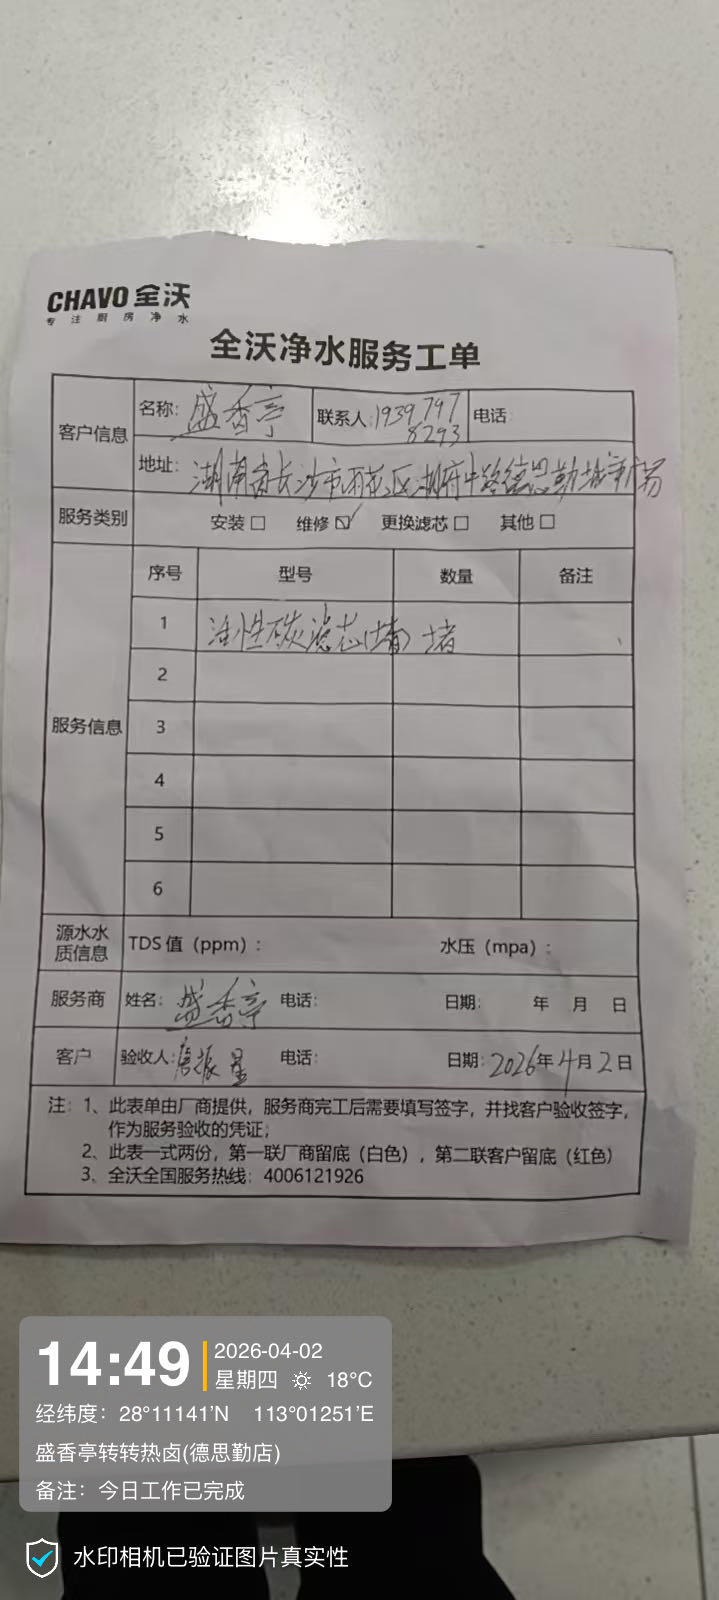 CHAVO 全沃
专注厨房净水
全沃净水服务工单
客户信息 名称: 盛香亭 联系人: 1939797 8293 电话:
地址: 湖南省长沙市雨花区湖府中路德思勤城市广场
服务类别 安装□ 维修☑ 更换滤芯□ 其他□
服务信息 序号 型号 数量 备注
1 活性炭滤芯(堵) 堵
2
3
4
5
6
源水水质信息 TDS 值(ppm): 水压(mpa):
服务商 姓名: 盛香亭 电话: 日期: 年 月 日
客户 验收人: 唐振星 电话: 日期: 2026年4月2日
注: 1、此表单由厂商提供，服务商完工后需要填写签字，并找客户验收签字，
作为服务验收的凭证;
2、此表一式两份，第一联厂商留底（白色），第二联客户留底（红色）
3、全沃全国服务热线: 4006121926
14:49 2026-04-02
星期四 18°C
经纬度: 28°11141'N 113°01251'E
盛香亭转转热卤(德思勤店)
备注: 今日工作已完成
水印相机已验证图片真实性